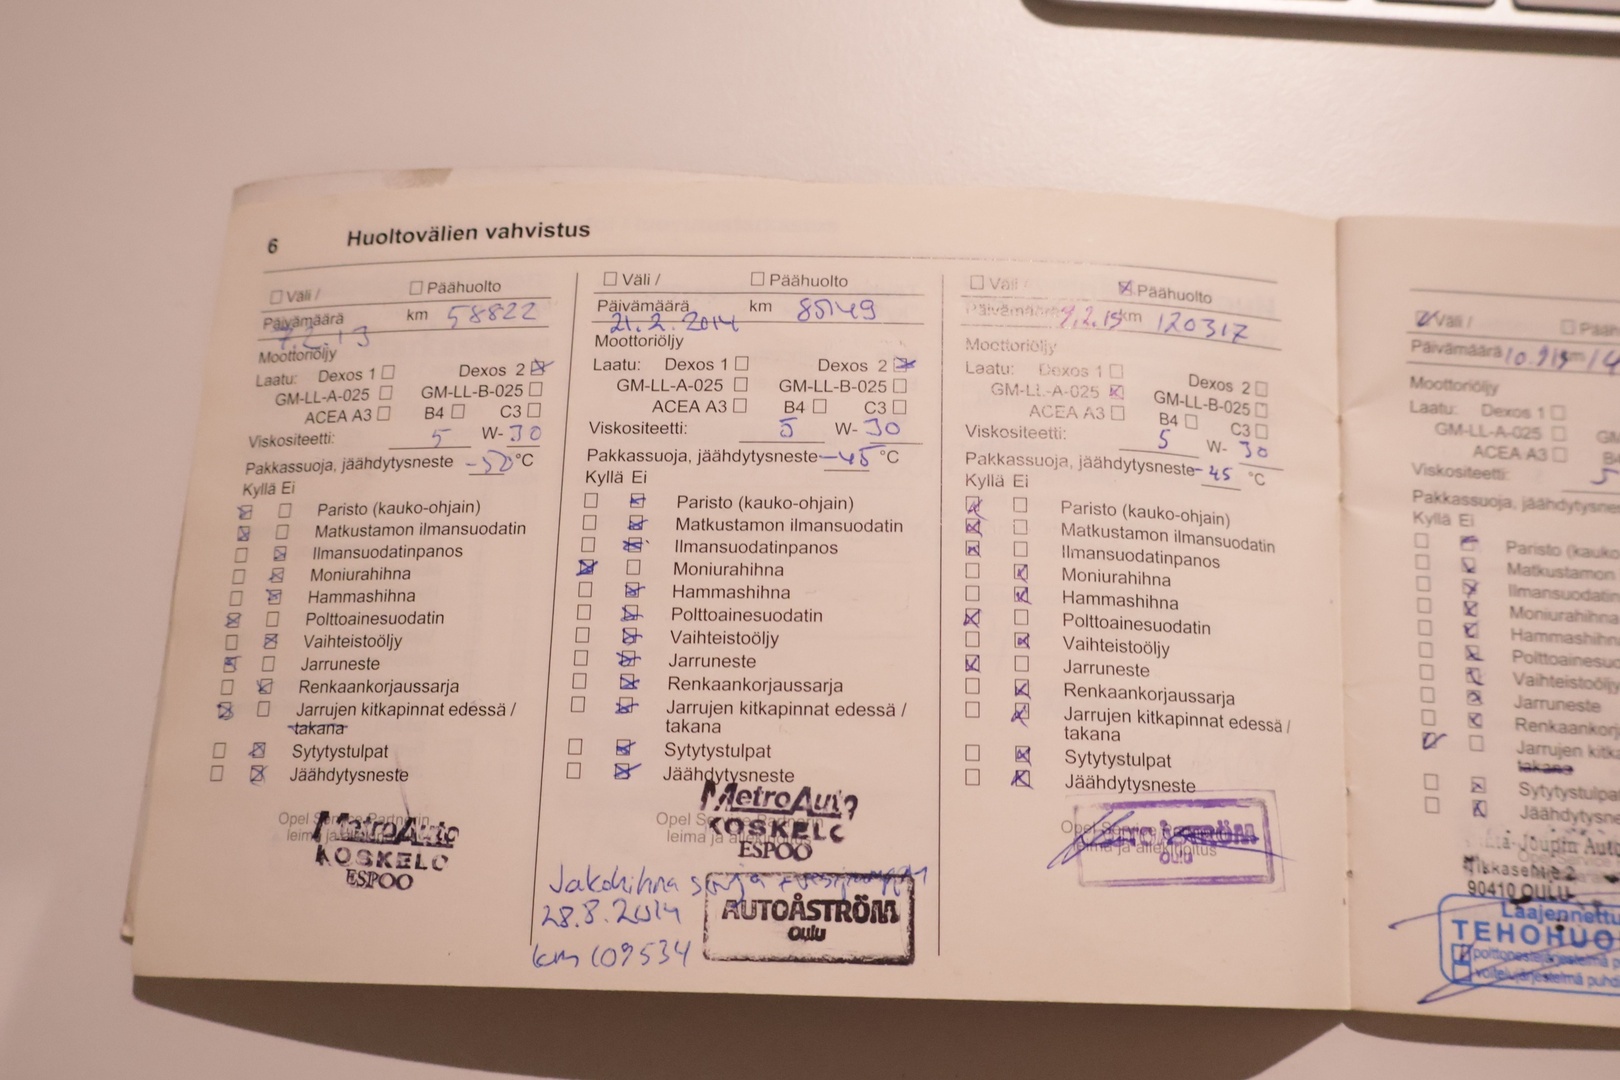 6 Huoltovälien vahvistus
☐ Väli / ☐ Päähuolto
Päivämäärä km 58822
7.2.13
Moottoriöljy
Laatu: Dexos 1 ☐ Dexos 2 ☒
GM-LL-A-025 ☐ GM-LL-B-025 ☐
ACEA A3 ☐ B4 ☐ C3 ☐
Viskositeetti: 5 W- 30
Pakkassuoja, jäähdytysneste °C
Kyllä Ei
☒ ☐ Paristo (kauko-ohjain)
☒ ☐ Matkustamon ilmansuodatin
☐ ☒ Ilmansuodatinpanos
☐ ☒ Moniurahihna
☐ ☒ Hammashihna
☒ ☐ Polttoainesuodatin
☐ ☒ Vaihteistoöljy
☒ ☐ Jarruneste
☐ ☒ Renkaankorjaussarja
☒ ☐ Jarrujen kitkapinnat edessä /
takana
☐ ☒ Sytytystulpat
☐ ☒ Jäähdytysneste
Opel Service Partnerin
leima ja
MetroAuto
KOSKELO
ESPOO
☐ Väli / ☐ Päähuolto
Päivämäärä km 85149
21.2.2014
Moottoriöljy
Laatu: Dexos 1 ☐ Dexos 2 ☒
GM-LL-A-025 ☐ GM-LL-B-025 ☐
ACEA A3 ☐ B4 ☐ C3 ☐
Viskositeetti: 5 W- 30
Pakkassuoja, jäähdytysneste -45 °C
Kyllä Ei
☐ ☒ Paristo (kauko-ohjain)
☐ ☒ Matkustamon ilmansuodatin
☐ ☒ Ilmansuodatinpanos
☒ ☐ Moniurahihna
☐ ☒ Hammashihna
☐ ☒ Polttoainesuodatin
☐ ☒ Vaihteistoöljy
☐ ☒ Jarruneste
☐ ☒ Renkaankorjaussarja
☐ ☒ Jarrujen kitkapinnat edessä /
takana
☐ ☒ Sytytystulpat
☐ ☒ Jäähdytysneste
Opel Service Partnerin
leima ja allekirjoitus
MetroAuto
KOSKELO
ESPOO
Jakohihna sarja + vesipumppu
28.8.2014
km 109534
AUTOÅSTRÖM
OULU
☐ Väli / ☒ Päähuolto
Päivämäärä 9.2.15 km 120317
Moottoriöljy
Laatu: Dexos 1 ☐ Dexos 2 ☐
GM-LL-A-025 ☒ GM-LL-B-025 ☐
ACEA A3 ☐ B4 ☐ C3 ☐
Viskositeetti: 5 W- 30
Pakkassuoja, jäähdytysneste -45 °C
Kyllä Ei
☒ ☐ Paristo (kauko-ohjain)
☒ ☐ Matkustamon ilmansuodatin
☒ ☐ Ilmansuodatinpanos
☐ ☒ Moniurahihna
☐ ☒ Hammashihna
☒ ☐ Polttoainesuodatin
☐ ☒ Vaihteistoöljy
☒ ☐ Jarruneste
☐ ☒ Renkaankorjaussarja
☐ ☒ Jarrujen kitkapinnat edessä /
takana
☐ ☒ Sytytystulpat
☐ ☒ Jäähdytysneste
Opel
leima ja allekirjoitus
OULU
☒ Väli / ☐ Pääh
Päivämäärä 10.9.15 km
Moottoriöljy
Laatu: Dexos 1 ☐
GM-LL-A-025 ☐ GM
ACEA A3 ☐ B4
Viskositeetti: 5
Pakkassuoja, jäähdytysneste
Kyllä Ei
☐ ☒ Paristo (kauko
☐ ☒ Matkustamon
☐ ☒ Ilmansuodatin
☐ ☒ Moniurahihna
☐ ☒ Hammashihna
☐ ☒ Polttoainesuo
☐ ☒ Vaihteistoöljy
☐ ☒ Jarruneste
☐ ☒ Renkaankorj
☒ ☐ Jarrujen kitka
takana
☐ ☒ Sytytystulpa
☐ ☒ Jäähdytysne
Joupin Auto
90410 OULU
Laajennettu
TEHOHUO
polttoainejärjestelmä p
voitelujärjestelmä puhd